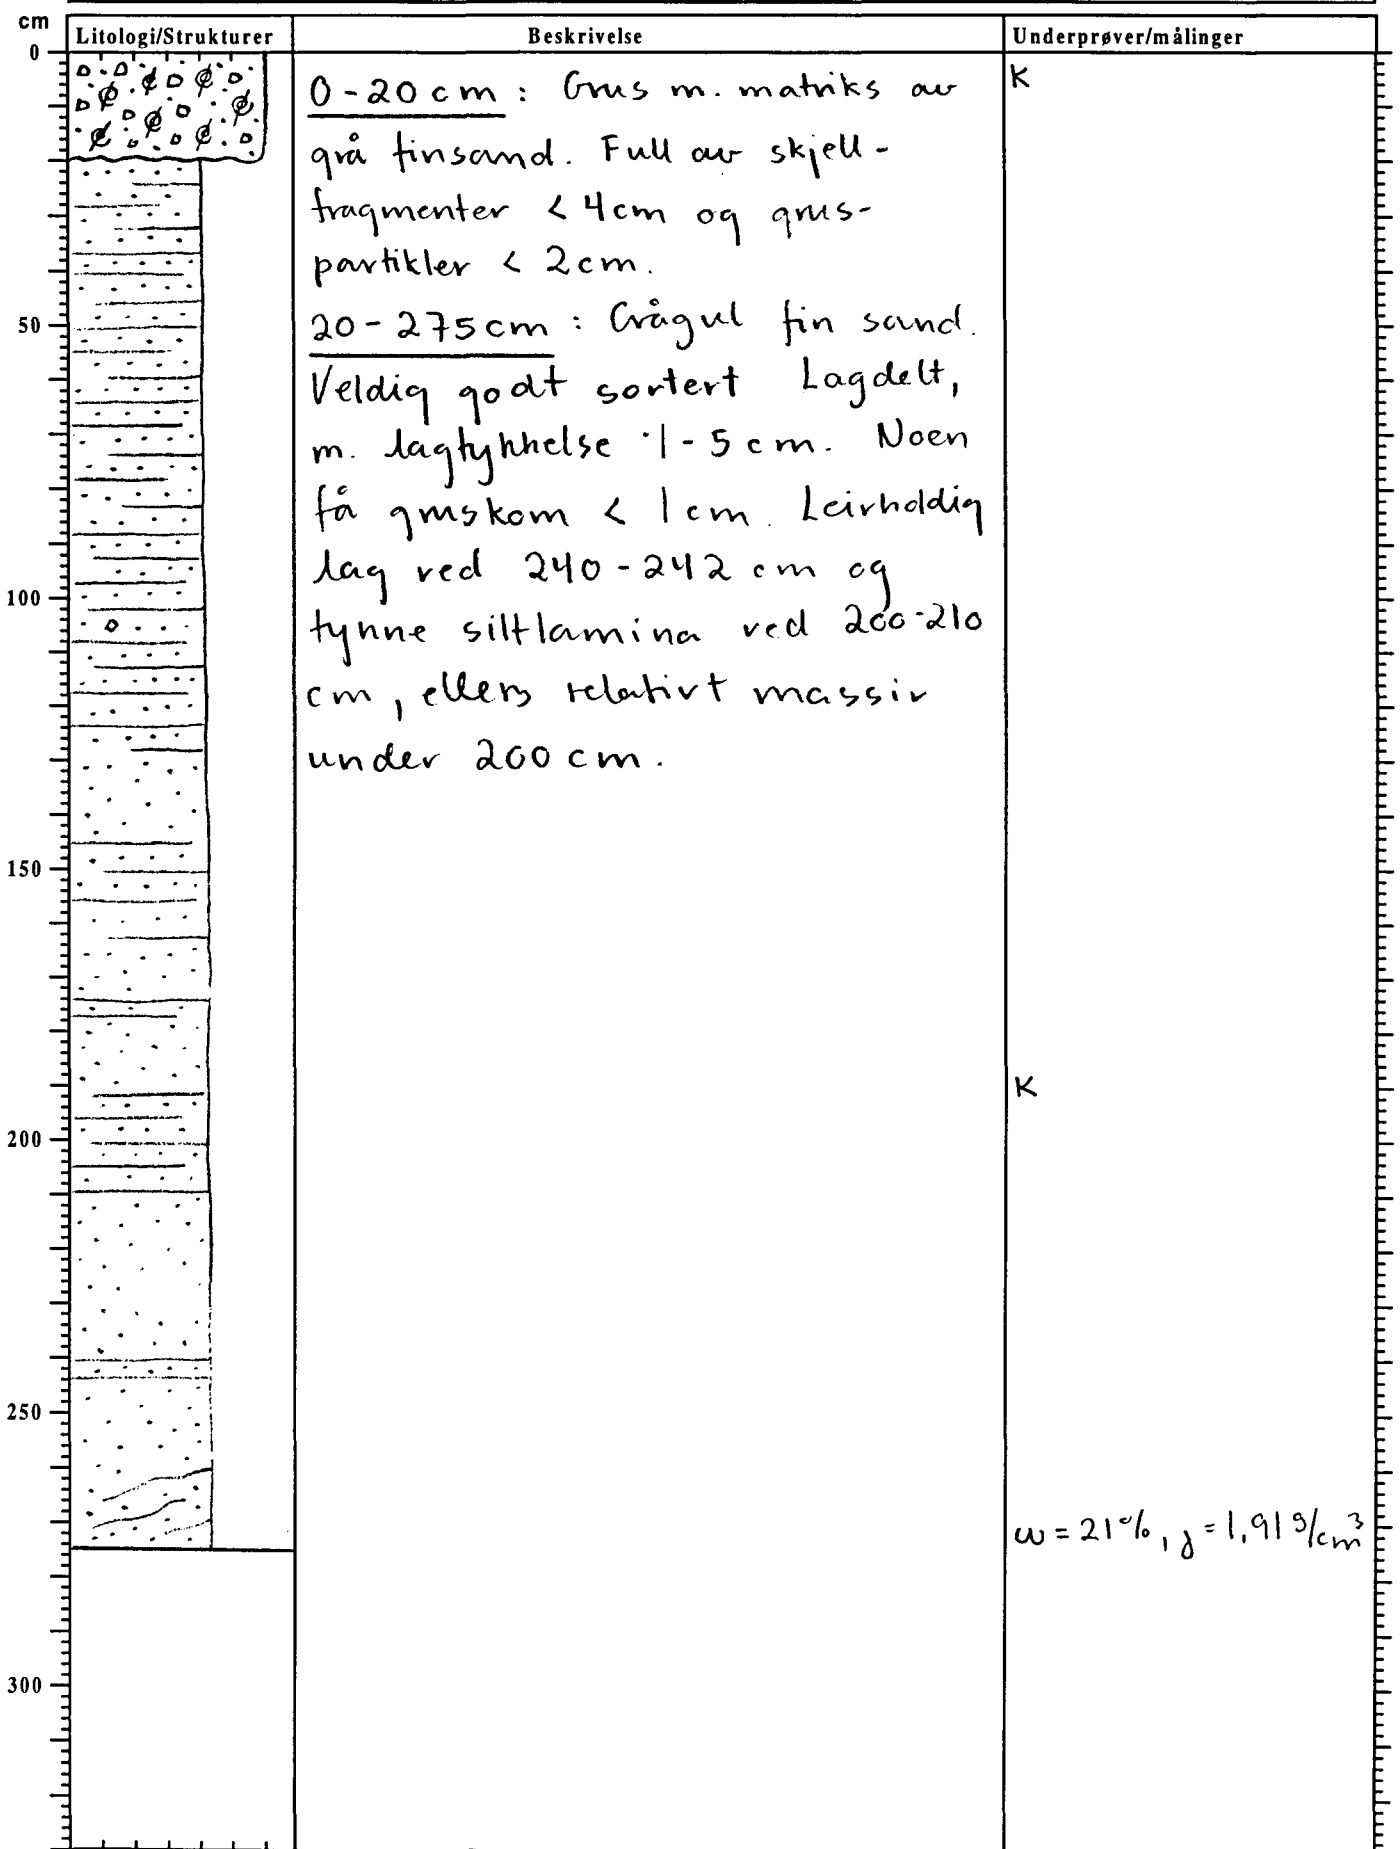 cm
Litologi/Strukturer
Beskrivelse
Underprøver/målinger
0
50
100
150
200
250
300
0-20 cm : Grus m. matriks av
grå finsand. Full av skjell-
fragmenter < 4cm og grus-
partikler < 2cm.
20-275cm : Grågul fin sand.
Veldig godt sortert Lagdelt,
m. lagtykkelse 1-5 cm. Noen
få gruskorn < 1cm. Leirholdig
lag ved 240-242 cm og
tynne siltlamina ved 200-210
cm, ellers relativt massiv
under 200 cm.
K
K
w = 21%, γ = 1,91 g/cm³